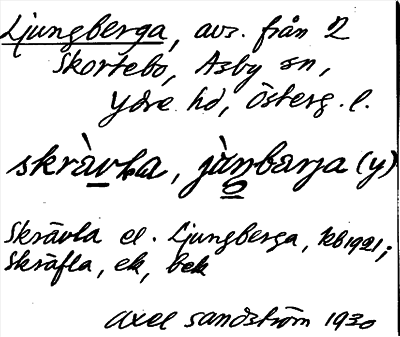 Ljungberga, avs. från 2
Skortebo, Asby sn,
Ydre hd, Österg. l.
skràvla, jùnbærja (y)
Skrävla el. Ljungberga, kb 1921;
Skräfla, ek, bek
Axel Sandström 1930